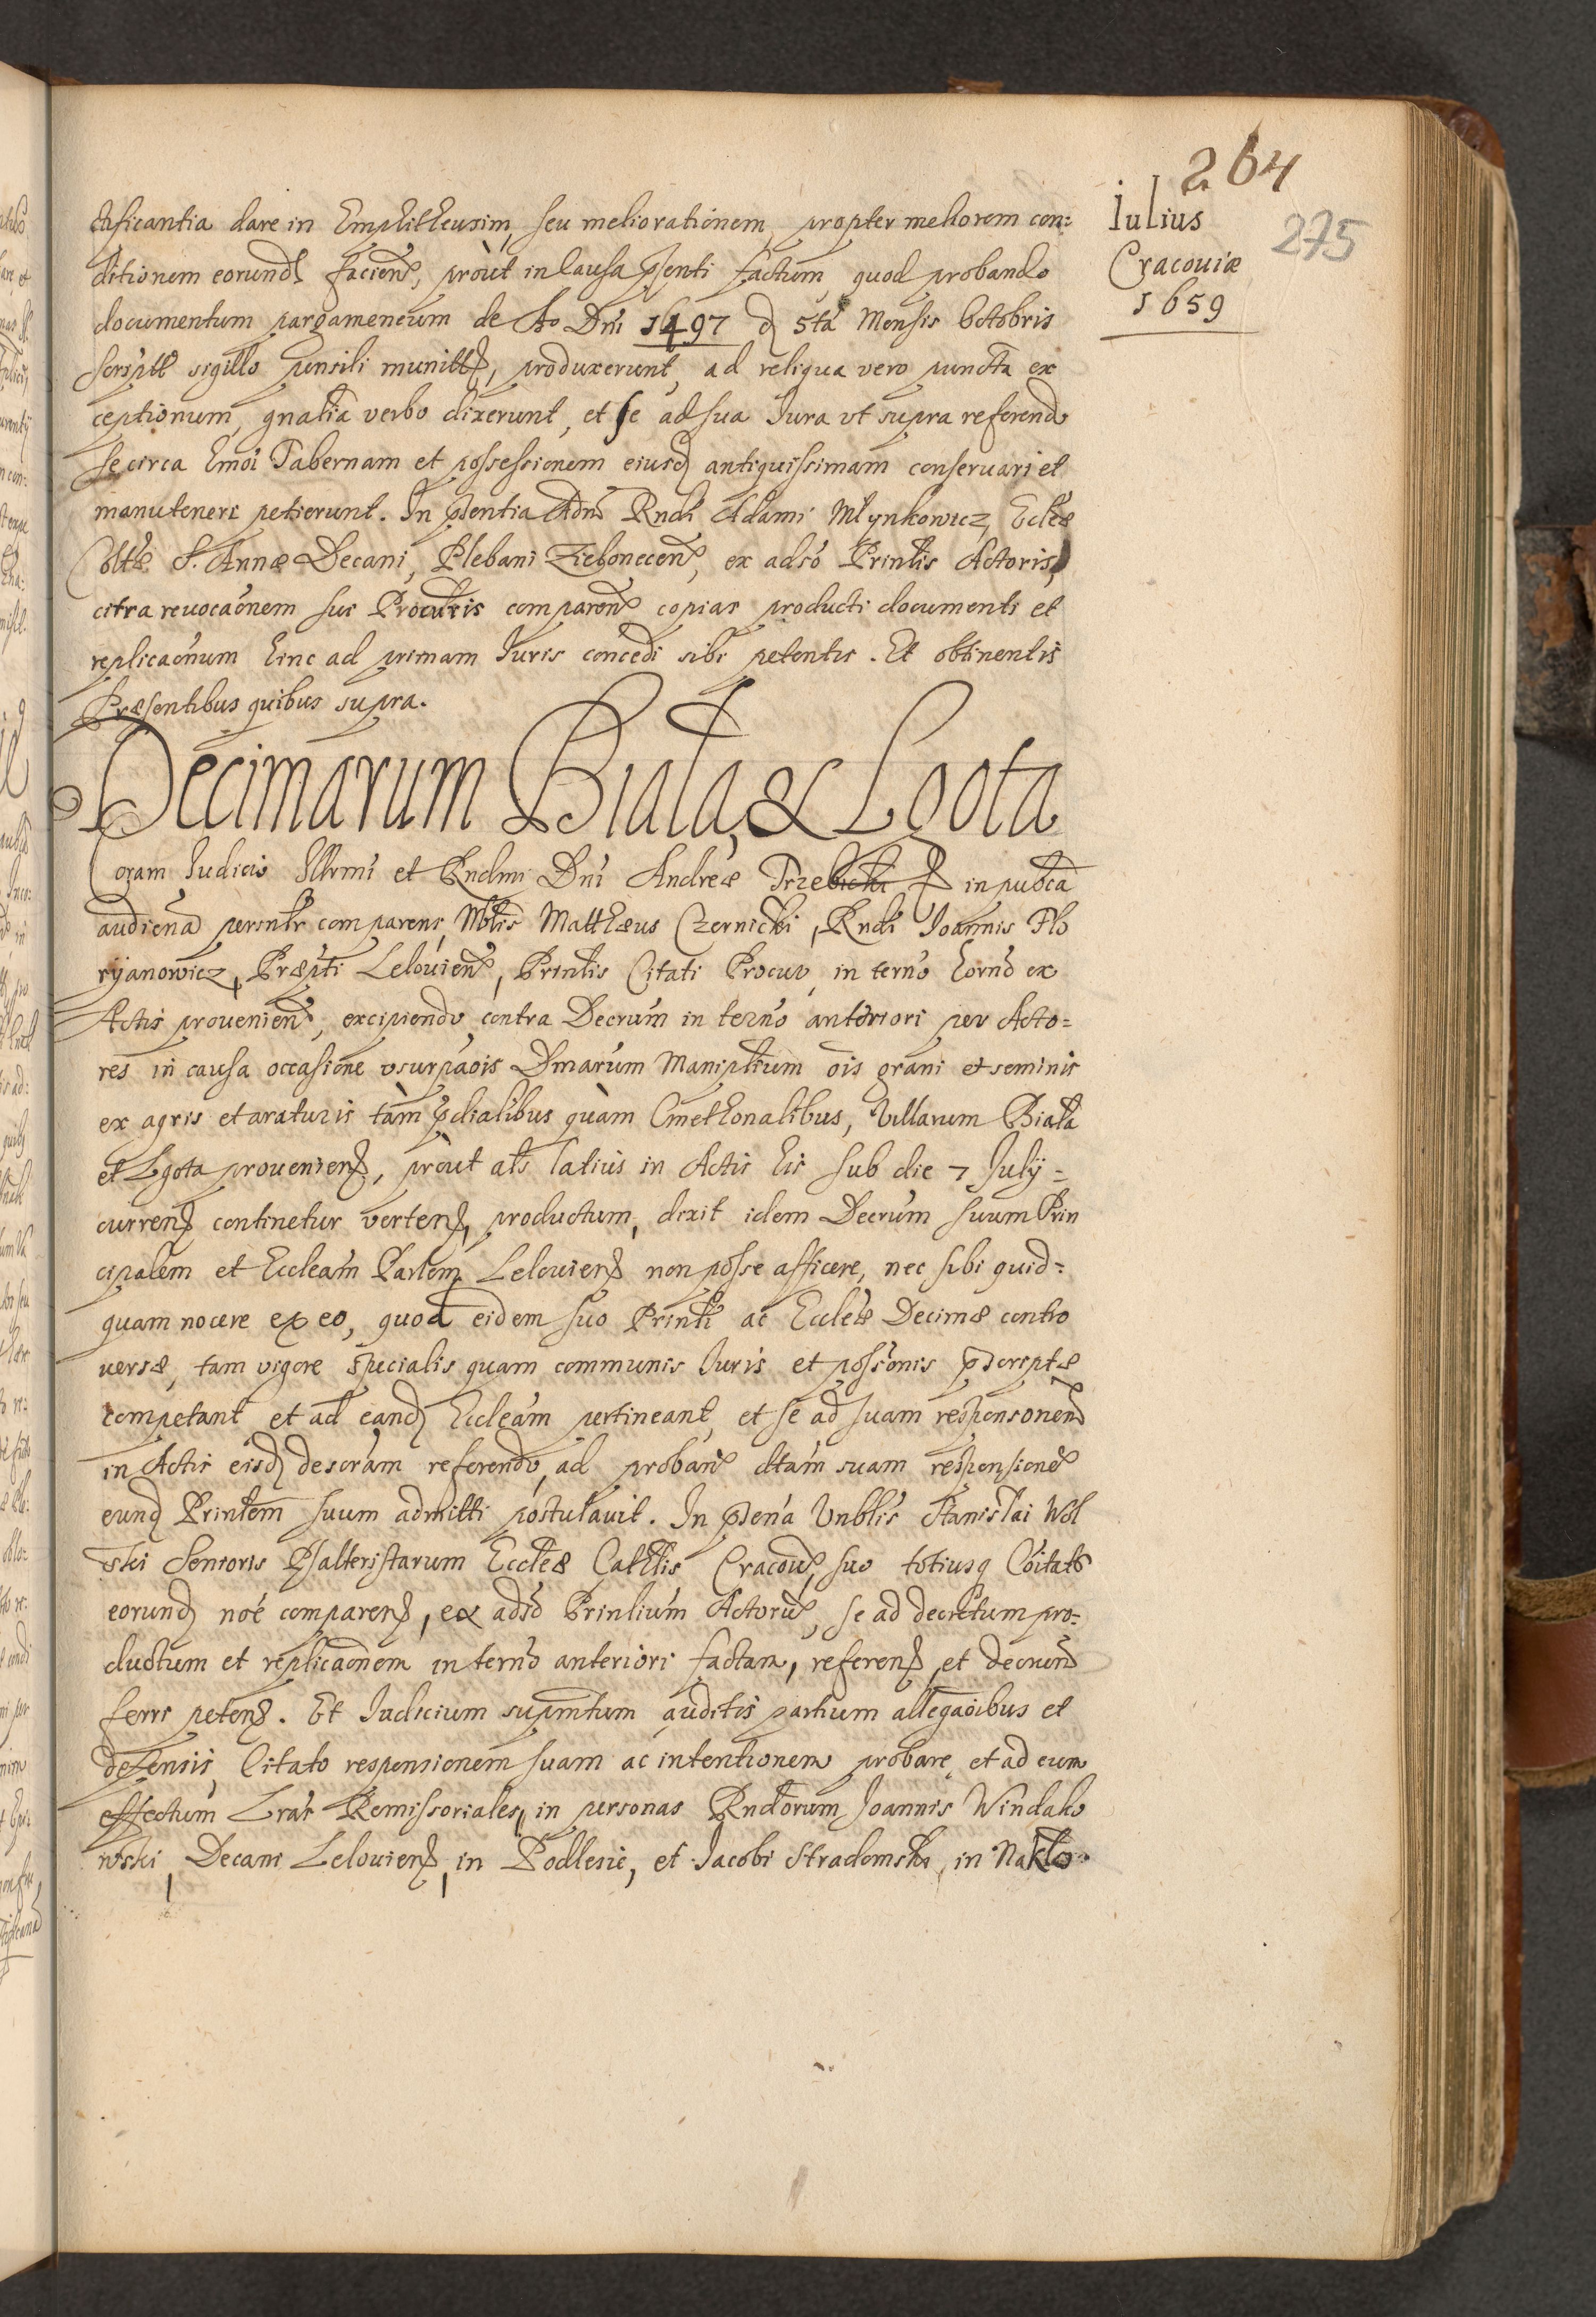 264
275
Iulius
Cracouiæ
1659
ctificantia dare in Emphitheusim, seu meliorationem, propter meliorem con:
ditionem eorund facien, proùt in Causa pnti factum, quod probando
documentum pargameneum de Ao Dni 1497 d 5ta Mensis Octobris
script sigillo pensili munitt, produxerunt, ad reliqua vero puncta ex
ceptionum, gnalia verbo dixerunt, et se ad sua Iura vt supra referendo
se circa Emoi Tabernam et possessionem eiusd antiquissimam conseruari et
manuteneri petierunt. In pntia Adm Rndi Adami Mlynkowicz, Eccles
Coltæ S. Annæ Decani, Plebani Zielonecen, ex adso Prinlis Actoris,
citra reuocaonem sui Procuris comparen copias producti documenti et
replicaonum hinc ad primam Iuris concedi sibi petentis. Et obtinentis
Præsentibus quibus supra.
Decimarum Biala, & Lgota
Coram Iudicio Illrmi et Rndmi Dni Andreæ Trzebicki in publca
audiena personlr comparens, Nblis Matthæus Czernicki, Rndi Ioannis Flo
ryanowicz, Præpti Lelouien, Prinlis Citati Procur, in terno horno ex
Actis prouenien, excipiendo contra Decrum in terno anteriori per Acto=
res in causa occasione vsurpaois Dmarum Maniplium ois grani et seminis
ex agris et araturis tàm pdialibus quàm Cmethonalibus, Villarum Biala
et Lgota prouenien, proùt als latius in Actis his sub die 7 July =
curren continetur verten, productum, dixit idem Decrum suum Prin
cipalem et Eccleam Parlem Lelouien non posse afficere, nec sibi quid=
quam nocere ex eo, quod eidem suo Prinli ac Eccleæ Decimæ contro
uersæ, tam vigore specialis quam communis Iuris et possonis pscriptæ
competant et ad eand Eccleam pertineant, et se ad suam responsonem
in Actis eisd descram referendo, ad proban dtam suam responsione
eund Prinlem suum admitti postulauit. In psena Vnblis Stanislai Wol
ski Senioris Psalteristarum Eccleæ Cathlis Cracou, suo totiusq Coitats
eorund noe comparen, ex adso Prinlium Actoru, se ad decretum pro=
ductum et replicaonem in terno anteriori factam, referen et decrum
ferri peten. Et Iudicium supmtum auditis partium allegaoibus et
defensis, Citato responsionem suam ac intentionem probare, et ad eum
effectum Lras Remissoriales, in personas Rndorum Ioannis Windako
wski, Decani Lelouien, in Podlesie, et Iacobi Stradomski, in Naklo